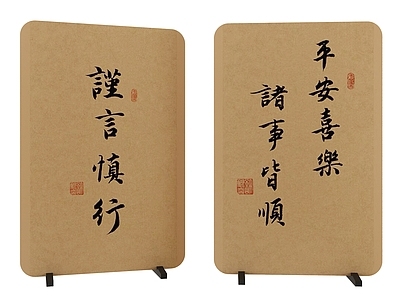 謹言慎行
平安喜樂
諸事皆順